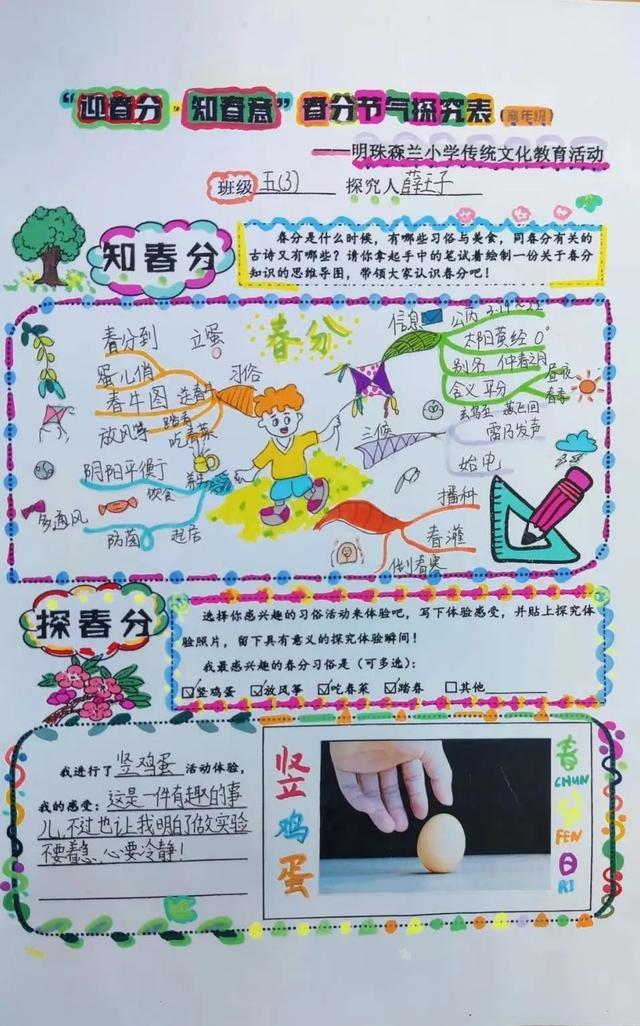 “迎春分·知春意”春分节气探究表(高年级)
——明珠森兰小学传统文化教育活动
班级 五(3) 探究人 薛玉子
知春分
春分是什么时候，有哪些习俗与美食，同春分有关的
古诗又有哪些？请你拿起手中的笔试着绘制一份关于春分
知识的思维导图，带领大家认识春分吧！
春分
春分到 立蛋
蛋儿俏
习俗
春牛图 送春牛
踏青
放风筝 吃春菜
阴阳平衡
饮食
多通风
防菌 起居
信息
公历 3.19~22
太阳黄经 0°
别名 仲春之月
含义 平分
昼夜
春季
三候
玄鸟至 燕飞回
雷乃发声
始电
播种
春灌
倒春寒
探春分
选择你感兴趣的习俗活动来体验吧，写下体验感受，并贴上探究体
验照片，留下具有意义的探究体验瞬间！
我最感兴趣的春分习俗是（可多选）：
☑竖鸡蛋 ☑放风筝 ☑吃春菜 ☑踏春 □其他
我进行了 竖鸡蛋 活动体验，
我的感受：这是一件有趣的事
儿，不过也让我明白了做实验
不要着急，心要冷静！
竖鸡蛋
春 CHUN
分 FEN
日 RI